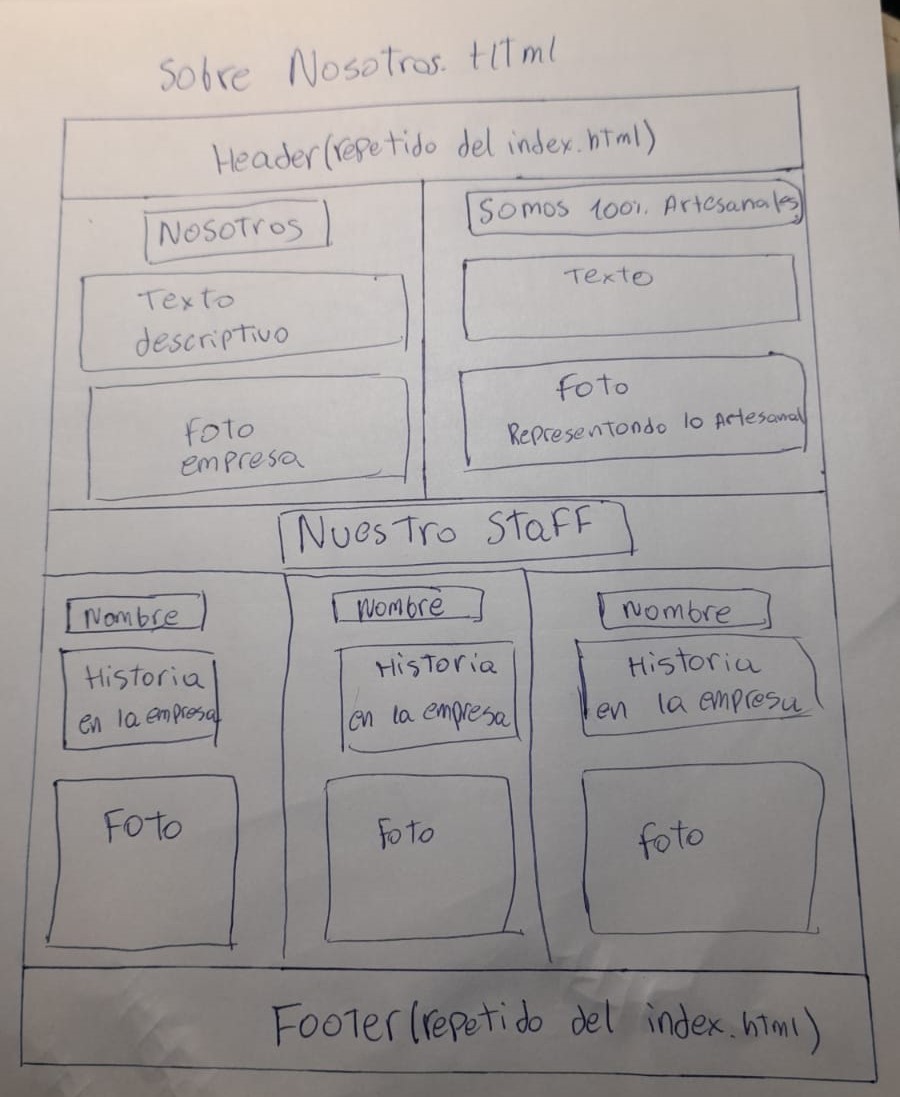 Sobre Nosotros. HTml
Header(repetido del index.html)
Nosotros
Texto
descriptivo
Foto
empresa
Somos 100% Artesanales
Texto
Foto
Representando lo Artesanal
Nuestro Staff
Nombre
Historia
en la empresa
Foto
Nombre
Historia
en la empresa
Foto
Nombre
Historia
en la empresa
foto
Footer(repetido del index.html)